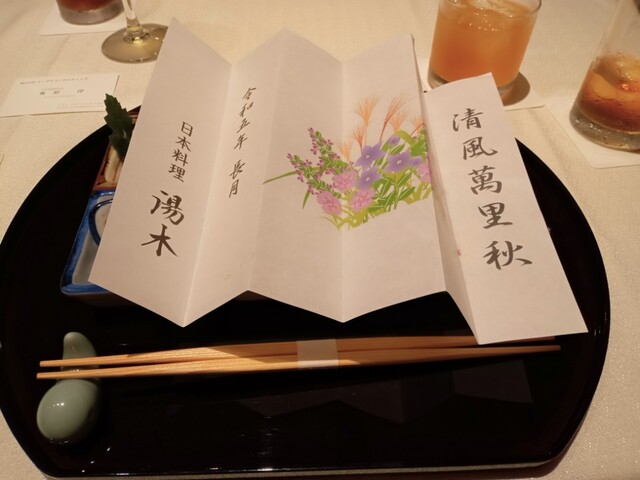 清風萬里秋
令和五年 長月
日本料理
湯木